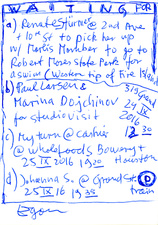 WAITING FOR
a) Renate Stürmer @ 2nd Ave
+ 10th St to pick her up
w/ Merlis Murkher to go to
Robert Moses State Park for
a swim (Western tip of Fire Island
b) Paul Larsen &
Marina Dojchinov
for studio visit
319 Grand
24
IX
2016
12 30
c) My turn @ cashier
@ Whole Foods Bowery +
Houston
25 IX 2016 19 20
d) Johanna S. @ Grand St.
D
train
25 IX 16 19 35
Egon